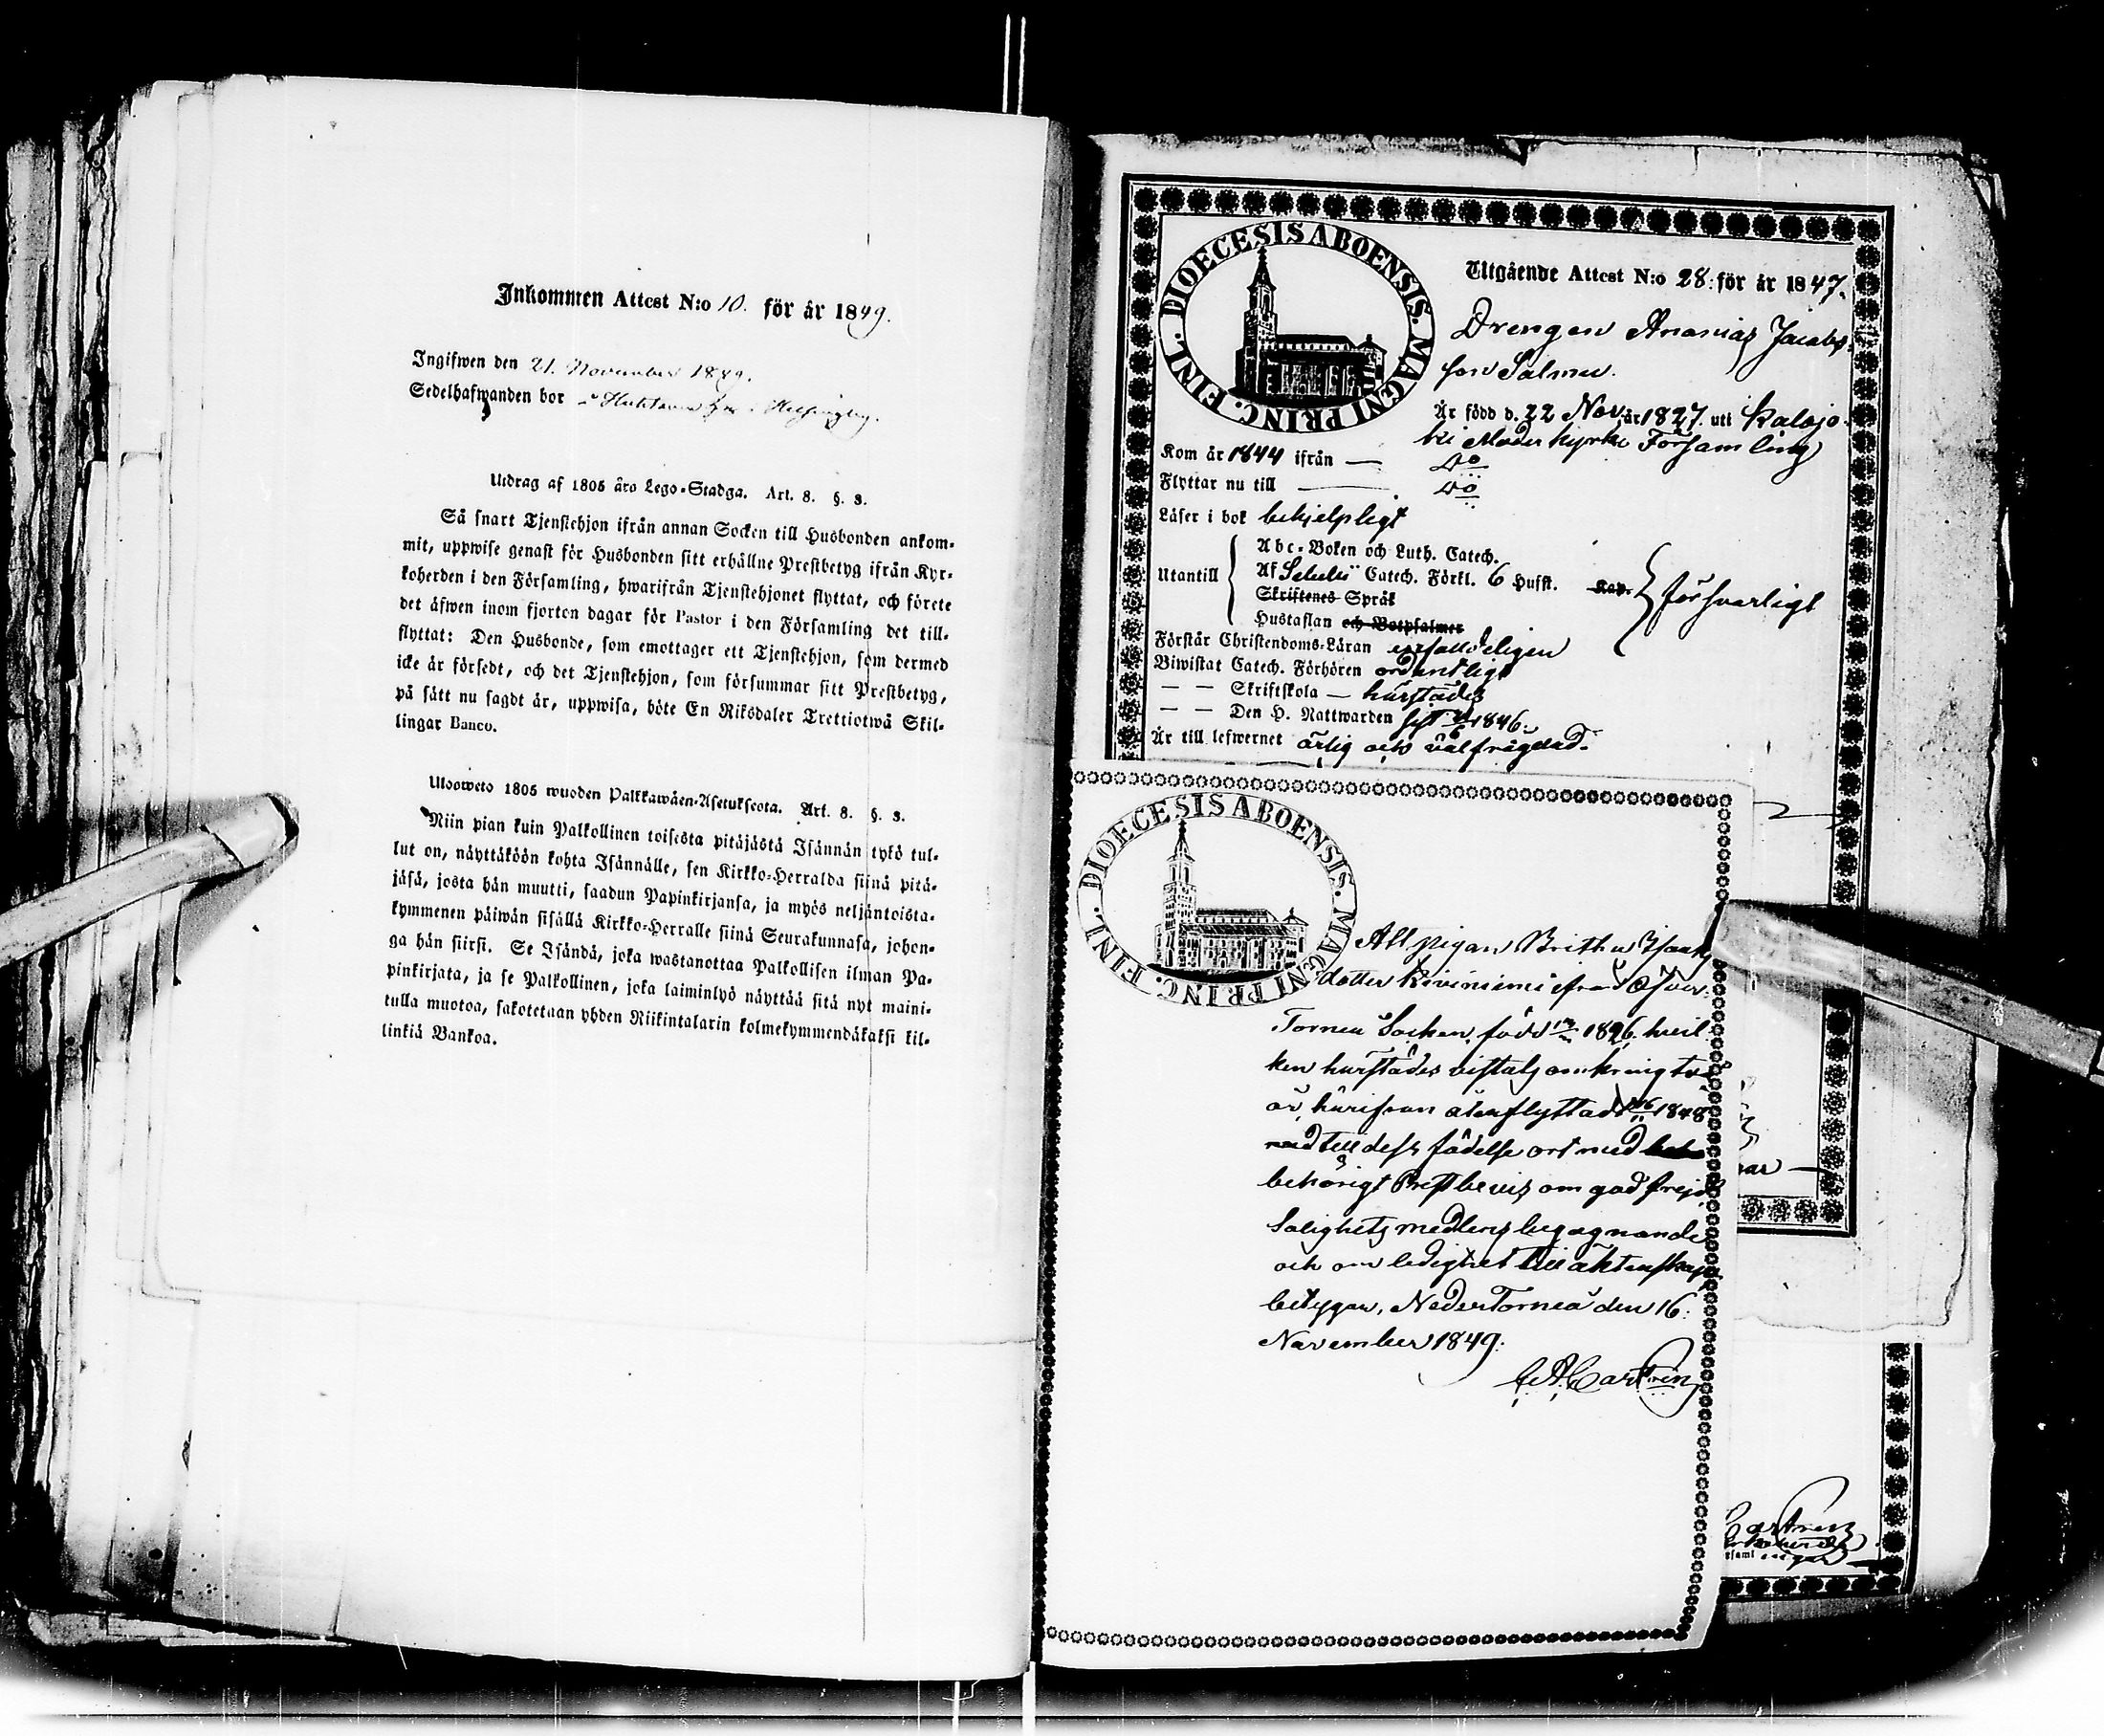 Inkommen Attest N:o 10. för år 1849.
Ingifwen den 21. November 1849.
Sedelhafwanden bor
Utdrag af 1805 års Lego-Stadga. Art. 8. §. 3.
Så snart Tjenstehjon ifrån annan Socken till Husbonden ankom-
mit, uppwise genast för Husbonden sitt erhållne Prestbetyg ifrån Kyr-
koherden i den Församling, hwarifrån Tjenstehjonet flyttat, och förete
det äfwen inom fjorton dagar för Pastor i den Församling det till-
flyttat: Den Husbonde, som emottager ett Tjenstehjon, som dermed
icke är försedt, och det Tjenstehjon, som försummar sitt Prestbetyg,
på sätt nu sagdt är, uppwisa, böte En Riksdaler Trettiotwå Skil-
lingar Banco.
Ulosweto 1805 wuoden Palkkawäen-Asetuksesta. Art. 8. §. 3.
Niin pian kuin Palkollinen toisesta pitäjästä Isännän tykö tul-
lut on, näyttäköön kohta Isännälle, sen Kirkko-Herralda siinä pitä-
jäsä, josta hän muutti, saadun Papinkirjansa, ja myös neljäntoista-
kymmenen päiwän sisällä Kirkko-Herralle siinä Seurakunnasa, johon-
ga hän siirsi. Se Isändä, joka wastanottaa Palkollisen ilman Pa-
pinkirjata, ja se Palkollinen, joka laiminlyö näyttää sitä nyt maini-
tulla muotoa, sakotetaan yhden Riikintalarin kolmekymmendäkaksi kil-
linkiä Bankoa.
DIOECESIS ABOENSIS. MAGNI PRINC. FINL.
Utgående Attest N:o 28: för år 1847.
Drengen Ananias Jacobs-
son Salmu.
Är född d. 22 Nov. år 1827. uti Kalajo-
ki Moderkyrko Församling
Kom år 1844 ifrån — Do
Flyttar nu till — Do
Läser i bok behjelpligt
Utantill
Abc-Boken och Luth. Catech.
Af Catech. Förkl. 6 Hufst. Kap.
Skriftenes Språk
Hustaflan och Botpsalmer
försvarligt
Förstår Christendoms-Läran
Biwistat Catech. Förhören ordentligt
— — Skriftskola — härstädes
— — Den H. Nattwarden 1846.
Är till lefwernet ärlig och välfrägdad.
DIOECESIS ABOENSIS. MAGNI PRINC. FINL.
Att pigan Britha Isaaks
dotter Kiviniemi ifrån Öfver-
Torneå Socken, född 1826. hvil-
ken härstädes vistats omkring två
år, härifrån afflyttadt 16/11 1848
med till dess födelse ort med
behörigt Prestbevis om god frejd
Salighets medlens begagnande
och om ledighet till äktenskap
betygar, Neder Torneå den 16:
November 1849.
Castrén
Castrén